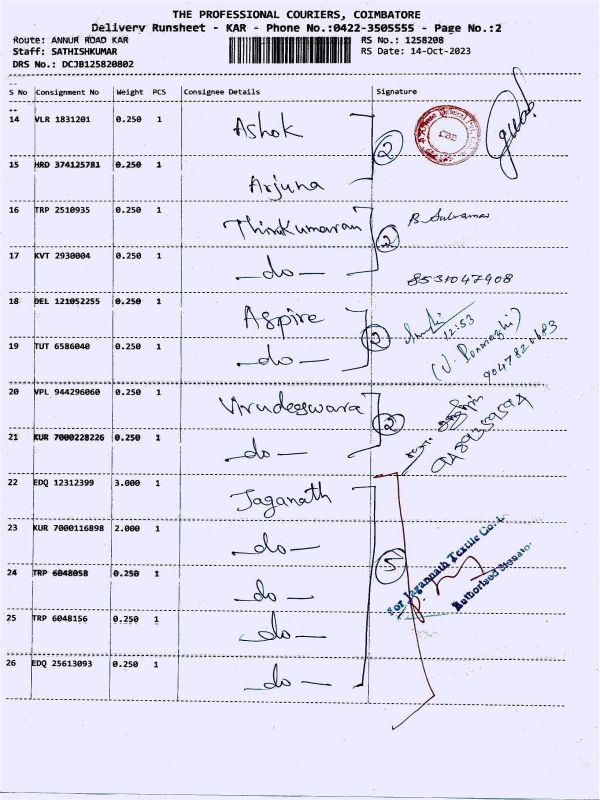 THE PROFESSIONAL COURIERS, COIMBATORE
Delivery Runsheet - KAR - Phone No.:0422-3505555 - Page No.:2
Route: ANNUR ROAD KAR RS No.: 1258208
Staff: SATHISHKUMAR RS Date: 14-Oct-2023
DRS No.: DCJB125820802
S No Consignment No Weight PCS Consignee Details Signature
14 VLR 1831201 0.250 1 Ashok
2
15 HRD 374125781 0.250 1 Arjuna
16 TRP 2510935 0.250 1 Thirukumaran
2
17 KVT 2930004 0.250 1 -do- 8531047908
18 DEL 121052255 0.250 1 Aspire
12:53
2
19 TUT 6586040 0.250 1 -do-
20 VPL 944296060 0.250 1 Virudeswara
2
21 KUR 7000228226 0.250 1 -do-
22 EDQ 12312399 3.000 1 Jaganath
23 KUR 7000116898 2.000 1 -do-
5
For Jagannath Textile Co.
Authorised Signatory
24 TRP 6048058 0.250 1 -do-
25 TRP 6048156 0.250 1 -do-
26 EDQ 25613093 0.250 1 -do-